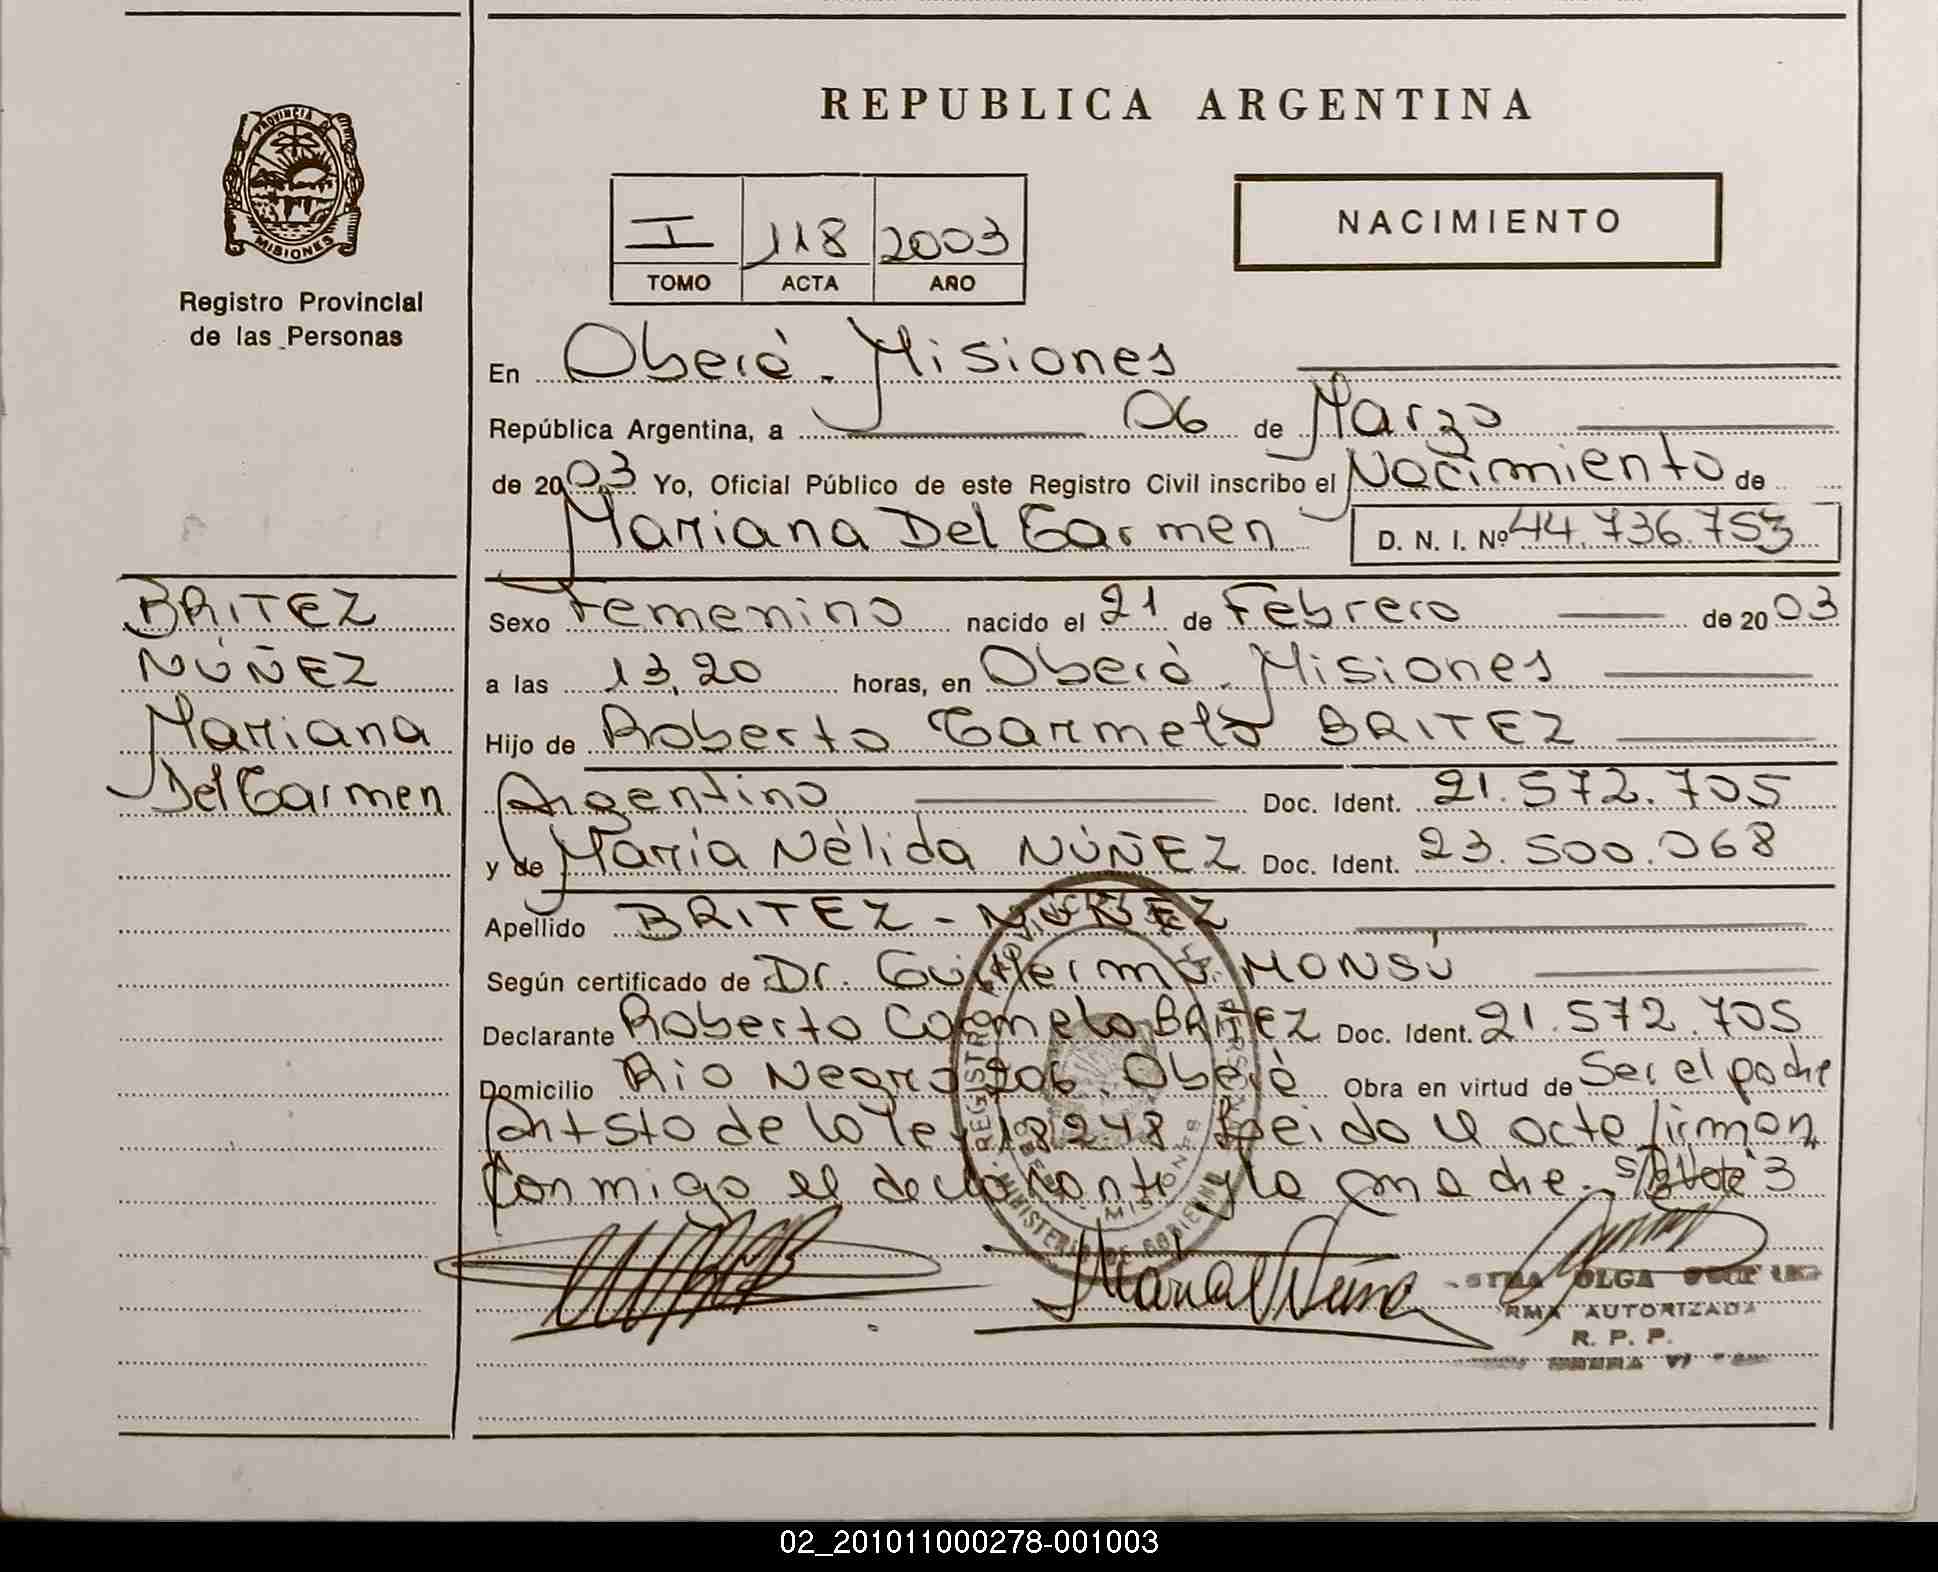 REPUBLICA ARGENTINA
PROVINCIA DE
MISIONES
Registro Provincial
de las Personas
I 118 2003
TOMO ACTA AÑO
NACIMIENTO
En Oberá - Misiones
República Argentina, a 06 de Marzo
de 2003 Yo, Oficial Público de este Registro Civil inscribo el Nacimiento de
Mariana Del Carmen D. N. I. Nº 44.736.753
BRITEZ
NÚÑEZ
Mariana
Del Carmen
Sexo Femenino nacido el 21 de Febrero de 2003
a las 13,20 horas, en Oberá - Misiones
Hijo de Roberto Carmelo BRITEZ
Argentino Doc. Ident. 21.572.705
y de María Nélida NÚÑEZ Doc. Ident. 23.500.068
Apellido BRITEZ - NÚÑEZ
Según certificado de Dr. Guillermo MONSÚ
Declarante Roberto Carmelo BRITEZ Doc. Ident. 21.572.705
Domicilio Rio Negro 206. Oberá Obra en virtud de Ser el padre
Art 5to de la ley 18248 Leido el acta firman
Conmigo el declarante y la madre. 3
OLGA
RMA AUTORIZADA
R. P. P.
02_201011000278-001003